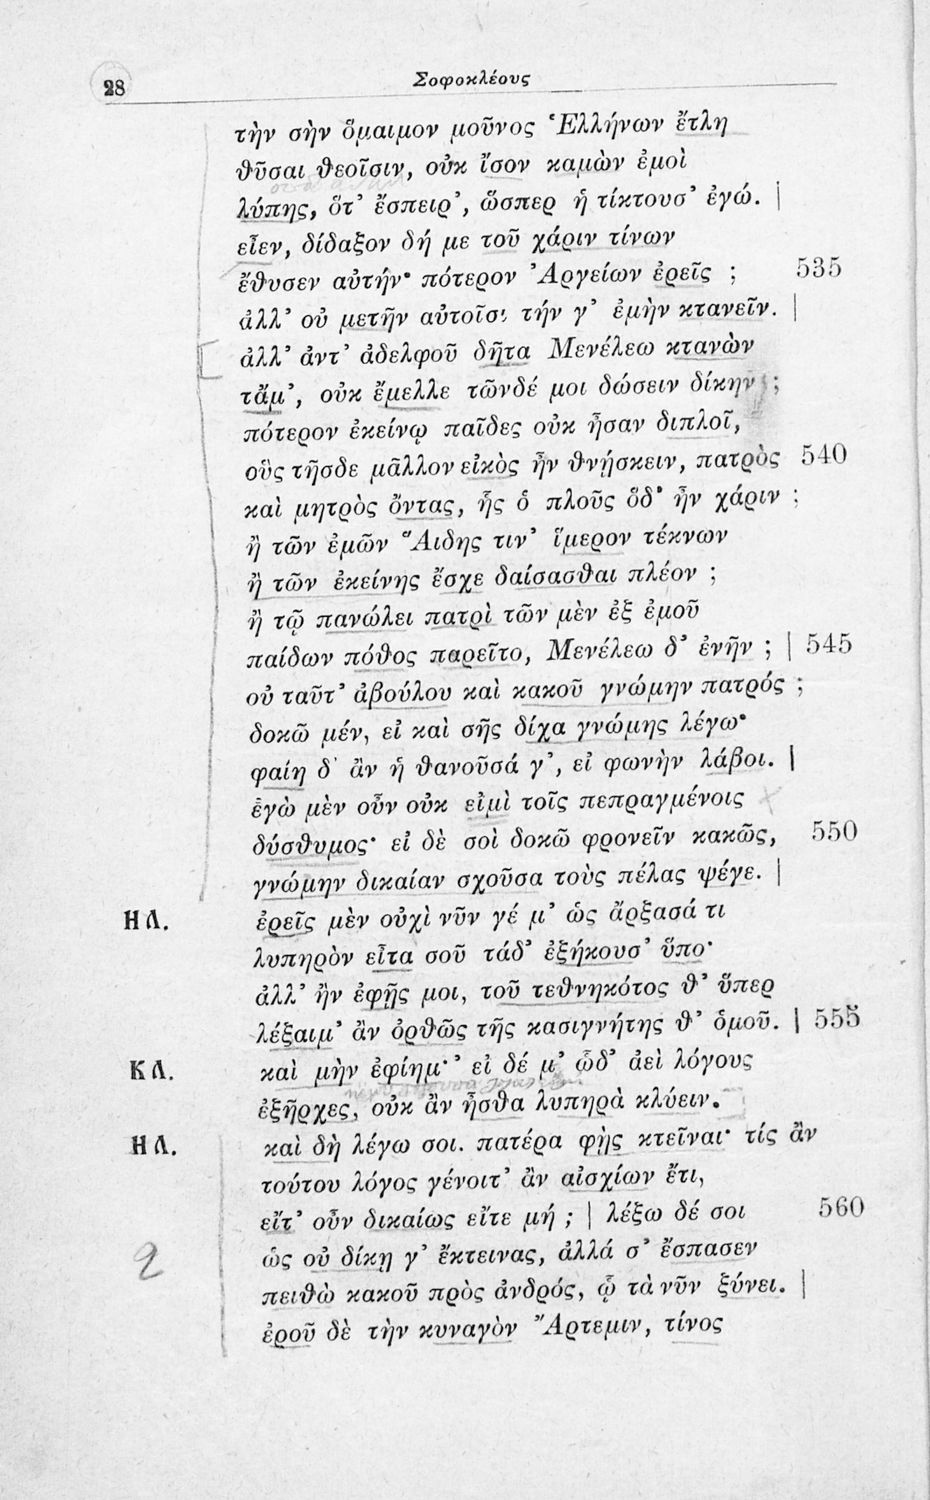 28
Σοφοκλέους
τὴν σὴν ὅμαιμον μοῦνος Ἑλλήνων ἔτλη
θῦσαι θεοῖσιν, οὐκ ἴσον καμὼν ἐμοὶ
λύπης, ὅτ’ ἔσπειρ’, ὥσπερ ἡ τίκτουσ’ ἐγώ. |
εἶεν, δίδαξον δή με τοῦ χάριν τίνων
ἔθυσεν αὐτήν· πότερον Ἀργείων ἐρεῖς ; 535
ἀλλ’ οὐ μετῆν αὐτοῖσι τήν γ’ ἐμὴν κτανεῖν. |
ἀλλ’ ἀντ’ ἀδελφοῦ δῆτα Μενέλεω κτανὼν
τἄμ’, οὐκ ἔμελλε τῶνδέ μοι δώσειν δίκην ;
πότερον ἐκείνῳ παῖδες οὐκ ἦσαν διπλοῖ,
οὓς τῆσδε μᾶλλον εἰκὸς ἦν θνῄσκειν, πατρὸς 540
καὶ μητρὸς ὄντας, ἧς ὁ πλοῦς ὅδ’ ἦν χάριν ;
ἢ τῶν ἐμῶν Ἅιδης τιν’ ἵμερον τέκνων
ἢ τῶν ἐκείνης ἔσχε δαίσασθαι πλέον ;
ἢ τῷ πανώλει πατρὶ τῶν μὲν ἐξ ἐμοῦ
παίδων πόθος παρεῖτο, Μενέλεω δ’ ἐνῆν ; | 545
οὐ ταῦτ’ ἀβούλου καὶ κακοῦ γνώμην πατρός ;
δοκῶ μέν, εἰ καὶ σῆς δίχα γνώμης λέγω·
φαίη δ’ ἂν ἡ θανοῦσά γ’, εἰ φωνὴν λάβοι. |
ἐγὼ μὲν οὖν οὐκ εἰμὶ τοῖς πεπραγμένοις
δύσθυμος· εἰ δὲ σοὶ δοκῶ φρονεῖν κακῶς, 550
γνώμην δικαίαν σχοῦσα τοὺς πέλας ψέγε. |
ΗΛ. ἐρεῖς μὲν οὐχὶ νῦν γέ μ’ ὡς ἄρξασά τι
λυπηρὸν εἶτα σοῦ τάδ’ ἐξήκουσ’ ὕπο·
ἀλλ’ ἢν ἐφῇς μοι, τοῦ τεθνηκότος θ’ ὕπερ
λέξαιμ’ ἂν ὀρθῶς τῆς κασιγνήτης θ’ ὁμοῦ. | 555
ΚΛ. καὶ μὴν ἐφίημ’· εἰ δέ μ’ ὧδ’ ἀεὶ λόγους
ἐξῆρχες, οὐκ ἂν ἦσθα λυπηρὰ κλύειν.
ΗΛ. καὶ δὴ λέγω σοι. πατέρα φῂς κτεῖναι· τίς ἂν
τούτου λόγος γένοιτ’ ἂν αἰσχίων ἔτι,
εἴτ’ οὖν δικαίως εἴτε μή ; | λέξω δέ σοι 560
ὡς οὐ δίκῃ γ’ ἔκτεινας, ἀλλά σ’ ἔσπασεν
πειθὼ κακοῦ πρὸς ἀνδρός, ᾧ τὰ νῦν ξύνει. |
ἐροῦ δὲ τὴν κυναγὸν Ἄρτεμιν, τίνος